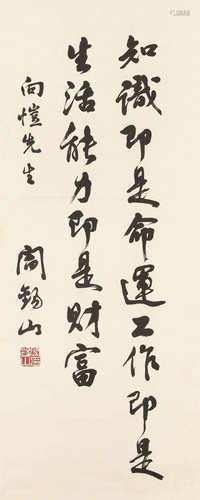 知識即是命運工作即是
生活能力即是財富
向愷先生
閻錫山